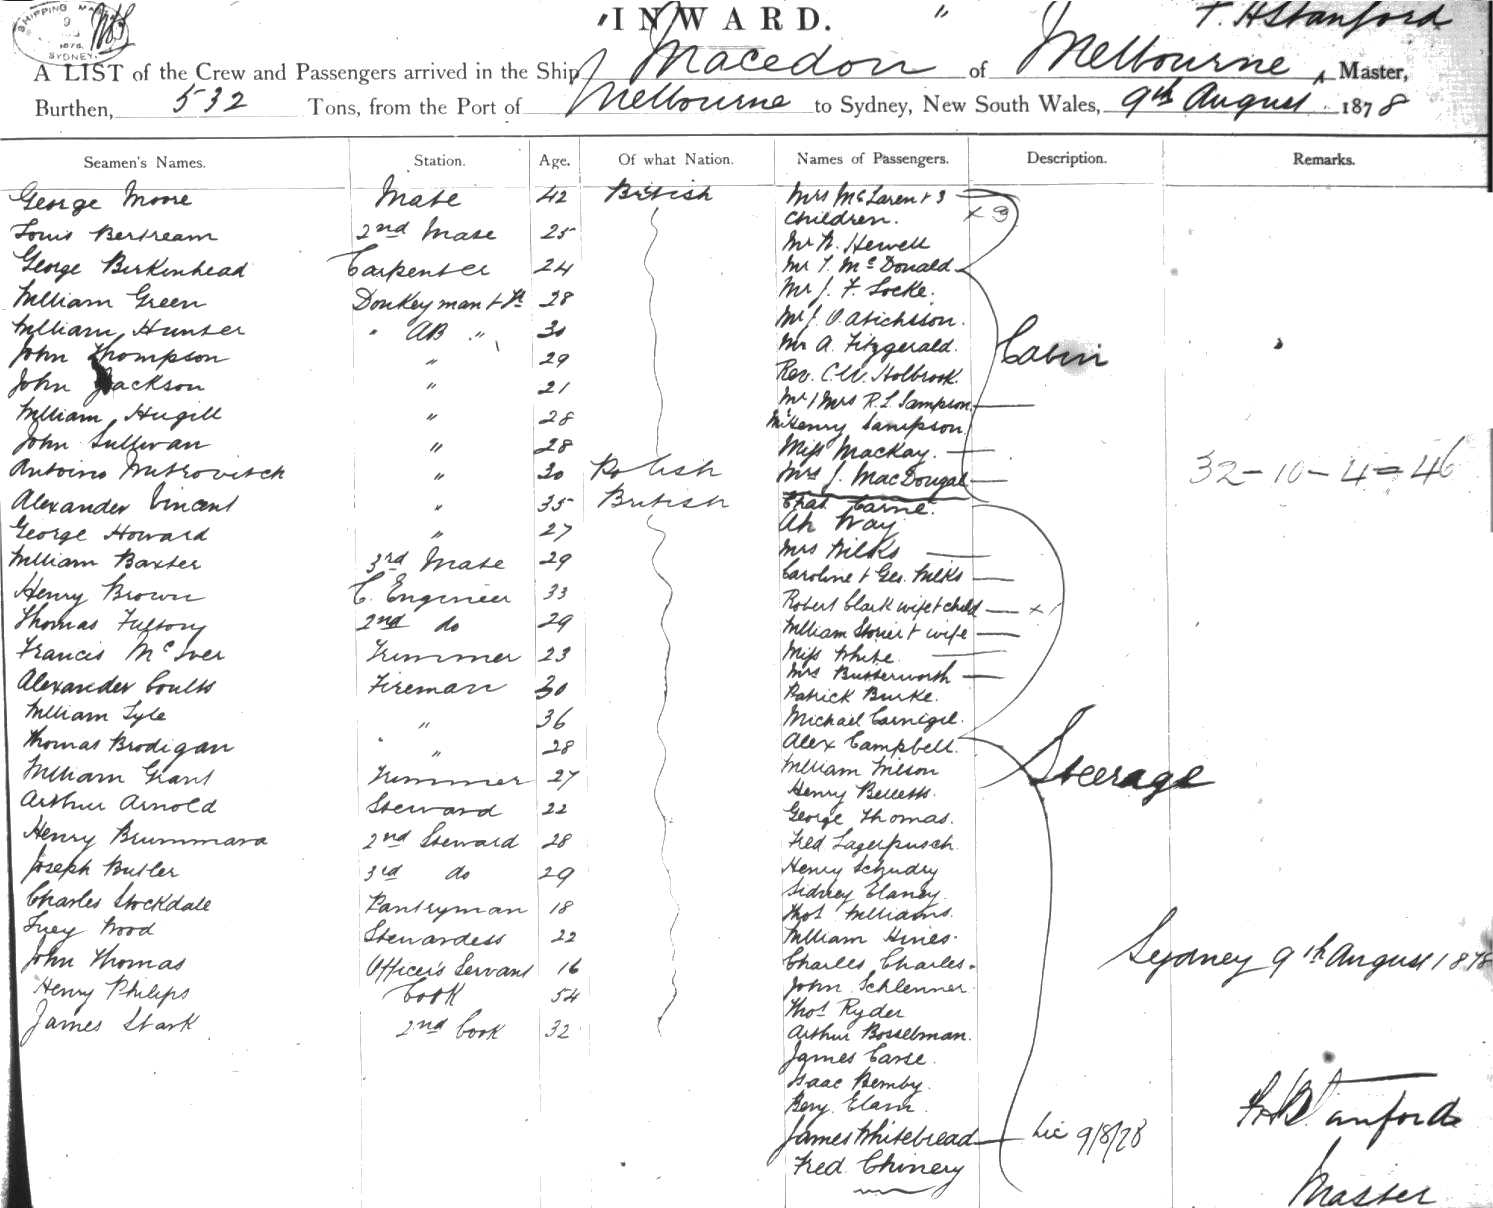 SHIPPING MA
9
1878
SYDNEY
"INWARD. "
T. H Stanford
A LIST of the Crew and Passengers arrived in the Ship Macedon of Melbourne, Master,
Burthen, 532 Tons, from the Port of Melbourne to Sydney, New South Wales, 9th August 1878
Seamen's Names. Station. Age. Of what Nation. Names of Passengers. Description. Remarks.
George Moore Mate 42 British
Louis Bertream 2nd Mate 25
George Birkinhead Carpenter 24
William Green Donkeyman + 28
William Hunter " AB " 30
John Thompson " 29
John Jackson " 21
William Hugill " 28
John Sullivan " 28
Antoino Mitrovitch " 30 Polish
Alexander Vincent " 35 British
George Howard " 27
William Baxter 3rd Mate 29
Henry Brown C. Engineer 33
Thomas Fultony 2nd do 29
Francis McIver Trimmer 23
Alexander Coutts Fireman 30
William Lyle " 36
Thomas Brodigan " 28
William Grant Trimmer 27
Arthur Arnold Steward 22
Henry Brummara 2nd Steward 28
Joseph Butler 3rd do 29
Charles Stockdale Pantryman 18
Wood Stewardess 22
John Thomas Officer's Servant 16
Henry Philips Cook 54
James Stark 2nd Cook 32
Mrs McLaren + 3
Children. x 3
Mr N. Hewell
Mr T. McDonald
Mr J. F. Locke.
Mr J. O.
Mr A. Fitzgerald.
Rev. C. W. Holbrook.
Mr / Mrs R. L. Sampson.
Mr Henry Sampson
Miss Mackay.
Mrs J. MacDougal
Cabin
Chas Carne.
Ah Way
Mrs Wilks
Caroline + Geo. Wilks
Robert Clark wife + child x 1
William Storier + wife
Miss White
Mrs Butterworth
Patrick Burke.
Michael Carnigie.
Alex Campbell.
William Wilson
Henry Belletts.
George Thomas.
Fred Lagerpusch.
Henry Schudry
Sidney Elaney.
Thos Williams.
William Hines.
Charles Charles.
John Schlenner.
Thos Ryder
Arthur Bosselman.
James Carse.
Isaac Bemby.
Benj. Elam.
James Whitebread
Fred. Chinery
Steerage
Lic 9/8/78
32 - 10 - 4 = 46
Sydney 9th August 1878
T. H Stanford
Master